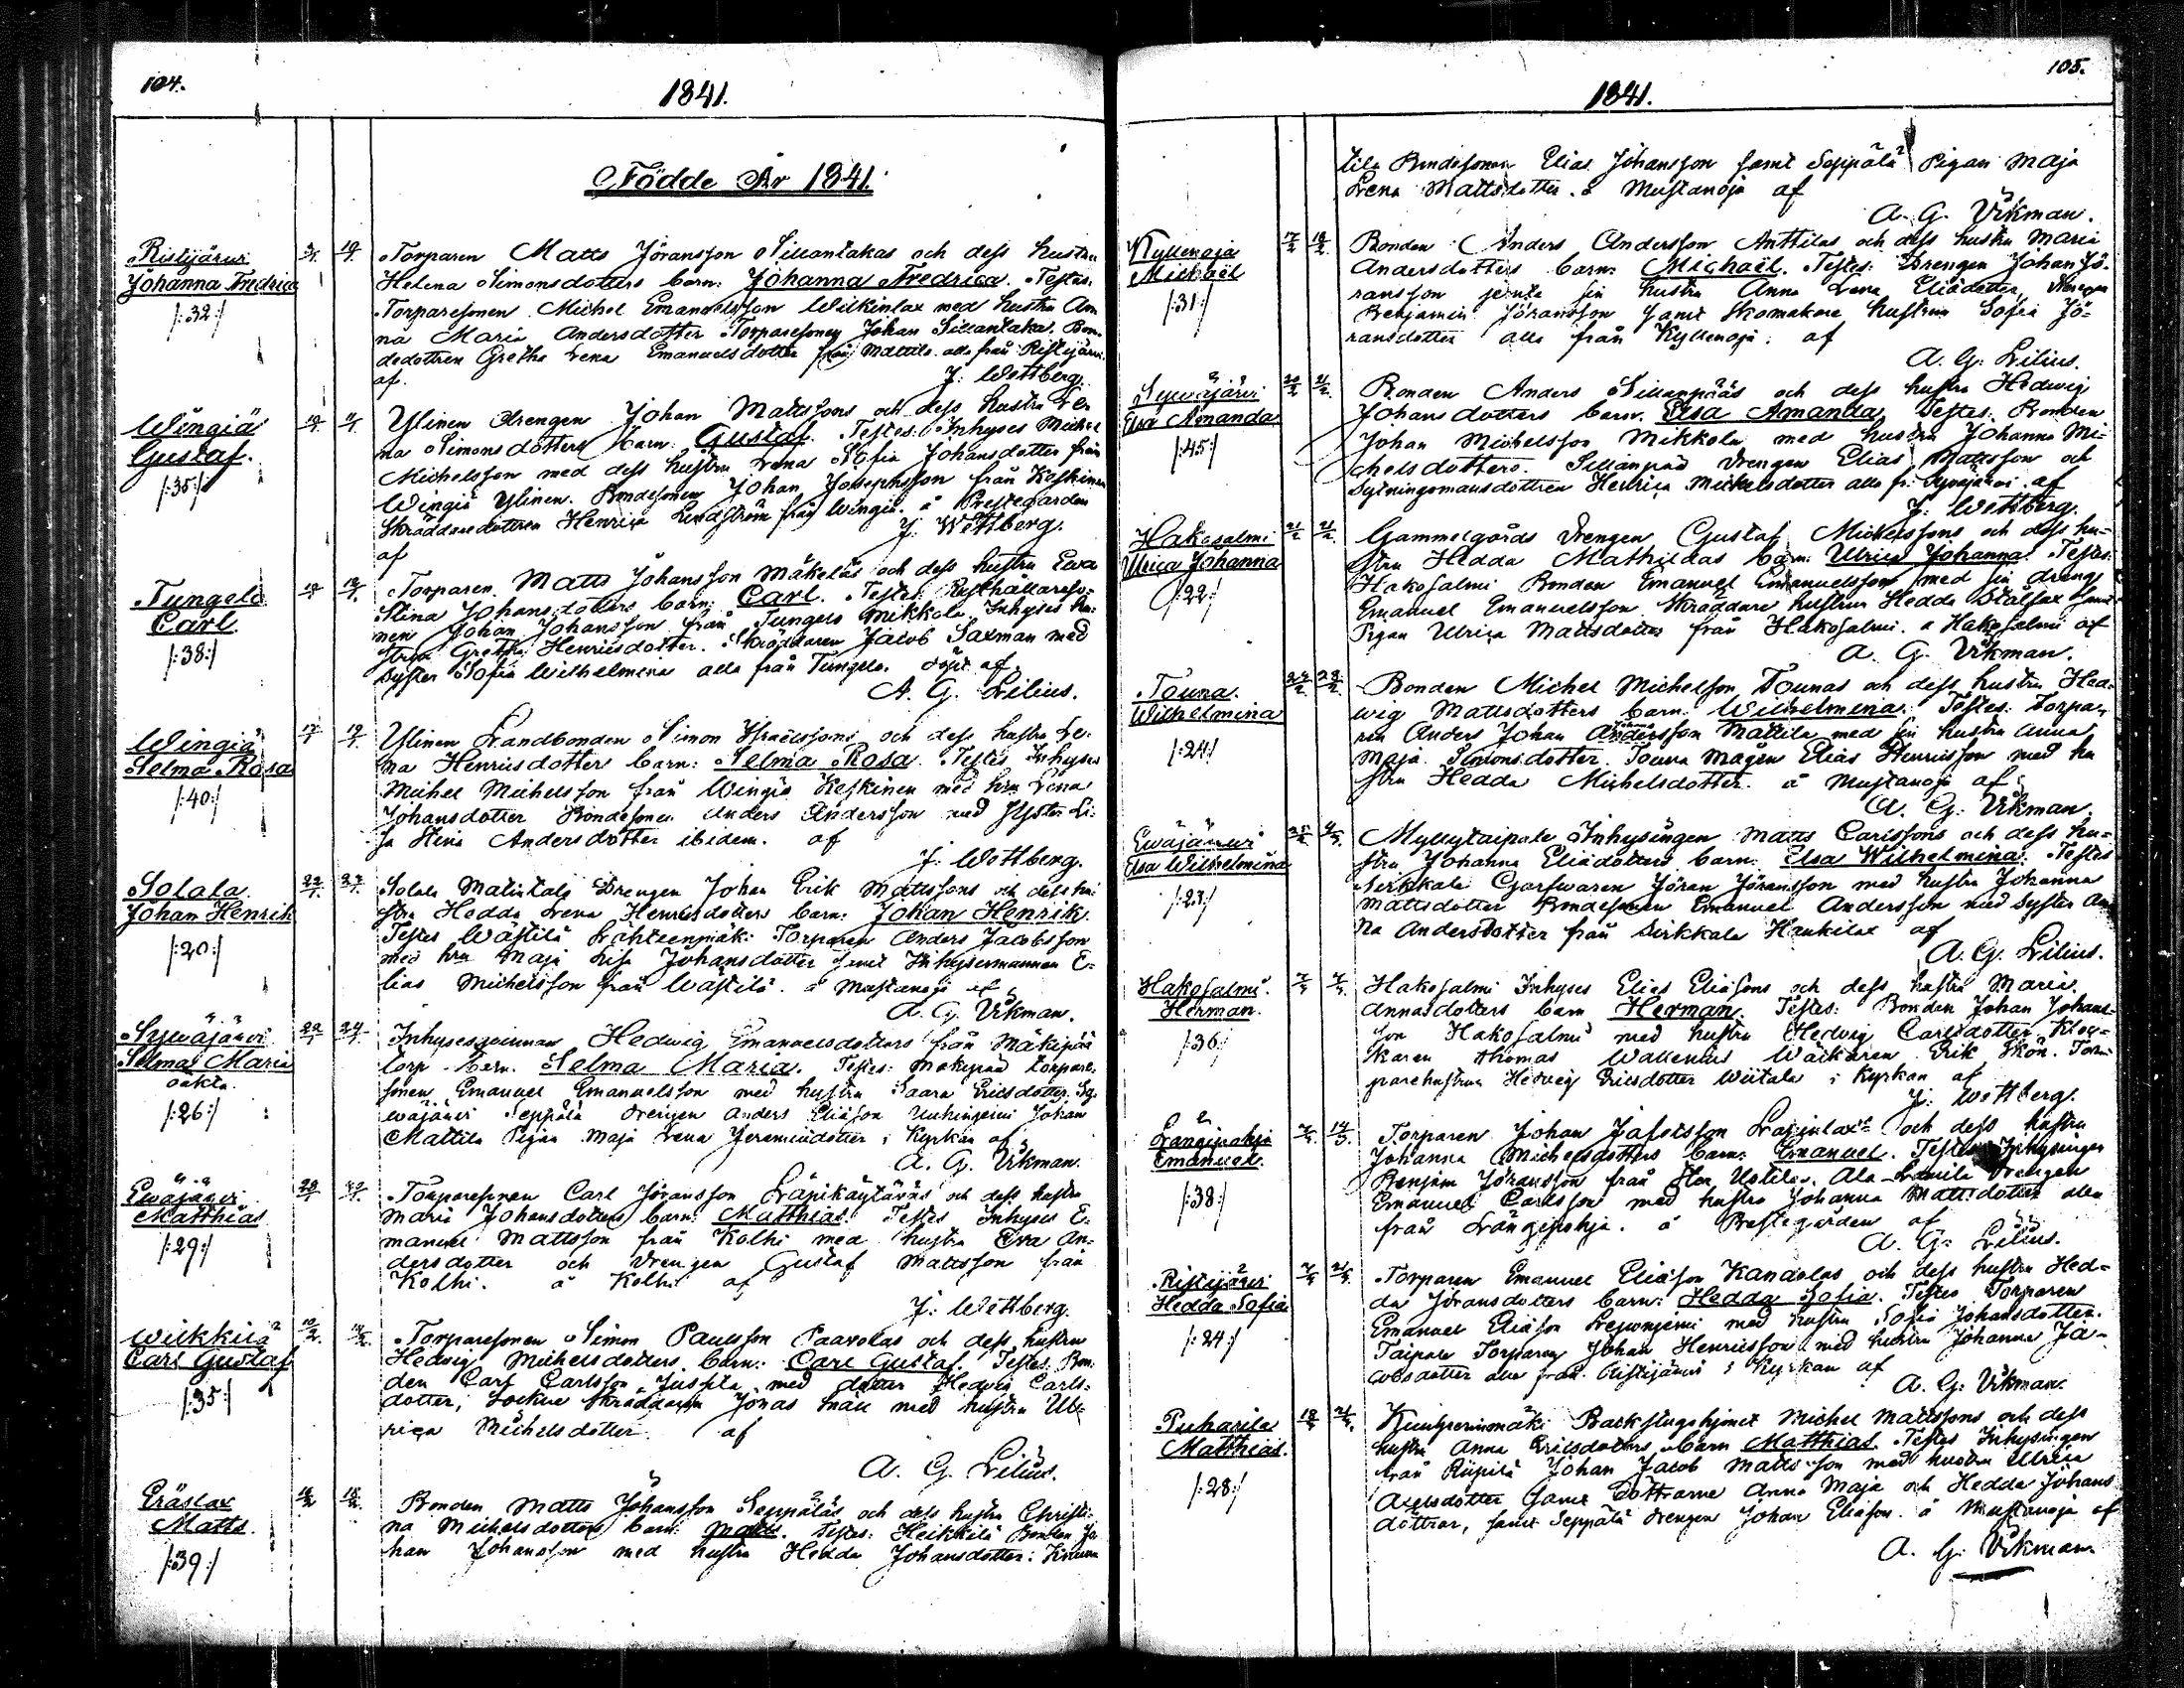 104.
1841.
Födde År 1841.
Ristijärvi
Johanna Fredrica
/:32:/
Torparen Matts Jöransson Sillantakas och dess hustru
Helena Simonsdotters barn: Johanna Fredrica. Testes:
Torparesonen Michel Emanuelsson Wilkinlax med hustru An
na Maria Andersdotter Torparesonen Johan Sillantaka. Bon-
dedottren Gretha Lena Emanuelsdotter från Mattila alla från Ristijärvi
af. J: Wettberg.
Wingiä
Gustaf.
/:35:/
Ylinen drengen Johan Mattssons och dess hustru Le-
na Simonsdotters barn: Gustaf. Testes: Inhyses Michel
Michelsson med dess hustru Lena Sofia Johansdotter från
Wingiä Ylinen. Bondesonen Johan Josephsson från Keskinen
Skräddaredottren Henrica Lindström från Wingiä. å Prestegården
af J: Wettberg.
Tungela
Carl.
/:38:/
Torparen Matts Johansson Mäkeläs och dess hustru Ewa
Stina Johansdotters barn: Carl. Testes: Rusthållareso-
nen Johan Johansson från Tungela Mikkola Inhyses hu-
stru Gretha Henricsdotter. Skräddaren Jacob Saxman med
syster Sofia Wilhelmina alla från Tungela. af
A. G. Lilius.
Wingiä
Selma Rosa
/:40:/
Ylinen Landbonden Simon Israelssons och dess hustru Le-
na Henricsdotters barn: Selma Rosa. Testes Inhyses
Michel Michelsson från Wingiä Keskinen med hru Lena
Johansdotter Bondesonen Anders Andersson med Syster Li-
sa Stina Andersdotter ibidem. af
J: Wettberg.
Solala
Johan Henrik
/:20:/
Solala Matintalo Drengen Johan Erik Mattssons och dess hu-
stru Hedda Lena Henricsdotters barn: Johan Henrik.
Testes Wästilä Lähteenmäki Torparen Anders Jacobsson
med hru Maja Lisa Johansdotter samt Inhysesmannen E-
lias Michelsson från Wästilä. å Mustanoja af
A. G. Vikman.
Sywäjärvi
Selma Maria
oäkta
/:26:/
Inhysesqvinnan Hedwig Emanuelsdotters från Mäkipää
torp barn. Selma Maria. Testes: Mäkipää torpare-
sonen Emanuel Emanuelsson med hustru Saara Ericsdotter. Sy-
wäjärvi Seppälä drengen Anders Eliasson Johan
Mattila Pigan Maja Lena Jeremiidotter i Kyrkan af
A. G. Vikman.
Ewäjärvi
Matthias
/:29:/
Torparesonen Carl Jöransson Läpikäytäväs och dess hustru
Maria Johansdotters barn: Matthias. Testes Inhyses E-
manuel Mattsson från Kolhi med hustru Eva An-
dersdotter och drengen Gustaf Mattsson från
Kolhi. å Kolhi af
J: Wettberg.
Wilkkilä
Carl Gustaf
/:35:/
Torparesonen Simon Paulsson Paavolas och dess hustru
Hedvig Michelsdotters barn: Carl Gustaf. Testes. Bon-
den Carl Carlsson Jussila med dotter Hedvig Carls-
dotter, Socken Skräddaren Jonas med hustru Ul-
rica Michelsdotter. af
A. G. Lilius.
Eräslax
Matts.
/:39:/
Bonden Matts Johansson Seppäläs och dess hustru Christi-
na Michelsdotters barn: Matts. Testes: Heikkilä Bonden Jo
han Johansson med hustru Hedda Johansdotter:
105.
1841.
tila Bondesonen Elias Johansson samt Seppälä Pigan Maja
Lena Mattsdotter. å Mustanoja af
A. G. Vikman.
Kyllenoja
Michaël
/:31:/
Bonden Anders Andersson Anttilas och dess hustru Maria
Andersdotters barn: Michaël. Testes: Drengen Johan Jö-
ransson jemte sin hustru Anna Lena Eliädotter, drengen
Benjamin Jöransson samt Skomakare hustrun Sofia Jö-
ransdotter alla från Kyllenoja. af
A. G. Lilius.
Sywäjärvi
Elsa Amanda
/:45:/
Bonden Anders Sillanpääs och dess hustru Hedwig
Johansdotters barn. Elsa Amanda. Testes: Bonden
Johan Michelsson Mikkola med hustru Johanna Mi-
chelsdotters. Sillanpää drengen Elias Mattsson och
Sytningsmansdottren Henrica Michelsdotter alla fr. Sywäjärvi. af
J: Wettberg.
Hakosalmi
Ulrica Johanna
/:22:/
Gammelgårds drengen Gustaf Michelssons och dess hu-
stru Hedda Mathildas barn: Ulrica Johanna. Testes:
Hakosalmi Bonden Emanuel Emanuelsson med sin dreng
Emanuel Emanuelsson Skräddare hustrun Hedda Stålfax samt
Pigan Ulrica Mattsdotter från Hakosalmi. å Hakosalmi af
A. G. Vikman.
Touna.
Wilhelmina
/:24:/
Bonden Michel Michelsson Tounas och dess hustru Hed-
wig Mattsdotters barn: Wilhelmina. Testes: Torpa-
ren Anders Johan Andersson Mattila med sin hustru Anna
Maja Simonsdotter. Touna Mågen Elias Henricsson med hu
stru Hedda Michelsdotter. å Mustanoja af
A. G. Vikman.
Ewäjärwi
Elsa Wilhelmina
/:23:/
Myllytaipale Inhysingen Matts Carlssons och dess hu-
stru Johanna Eliädotters barn: Elsa Wilhelmina. Testes
Sirkkala Garfwaren Jöran Jöransson med hustru Johanna
Mattsdotter Bondesonen Emanuel Andersson med Syster An
na Andersdotter från Sirkkala Haukilax af
A. G. Lilius.
Hakosalmi.
Herman.
/:36:/
Hakosalmi Inhyses Elias Eliäsons och dess hustru Maria
Annasdotters barn Herman. Testes: Bonden Johan Johans-
son Hakosalmi med hustru Hedvig Carlsdotter. Kloc-
karen Thomas Wallenius Wäckaren Erik Skön. Tor-
parehustrun Hedvig Ericsdotter Wiitala i Kyrkan af
J: Wettberg.
Långipohja
Emanuel.
/:38:/
Torparen Johan Jafetsson och dess hustru
Johanna Michelsdotters barn: Emanuel. Testes Inhysingen
Benjam Jöransson från Uotila. Ala-Uotila drengen
Emanuel Carlsson med hustru Johanna Mattsdotter alla
från Långipohja. å Prestegården af
A. G. Lilius.
Ristijärvi
Hedda Sofia
/:24:/
Torparen Emanuel Eliäson Kandolas och dess hustru Hed-
da Jöransdotters barn: Hedda Sofia. Testes Torparen
Emanuel Eliäson med hustru Sofia Johansdotter.
Taipale Torparen Johan Henricsson med hustru Johanna Ja-
cobsdotter alla från Ristijärvi i Kyrkan af
A. G: Vikman.
Puharila
Matthias.
/:28:/
Backstugshjonet Michel Mattssons och dess
hustru Anna Ericsdotters barn Matthias. Testes Inhysingen
från Riipilä Johan Jacob Mattsson med hustru Ulrica
Axelsdotter samt Döttrarne Anna Maja och Hedda Johans
döttrar, samt Seppälä drengen Johan Eliäson. å Mustanoja af
A. G: Vikman.